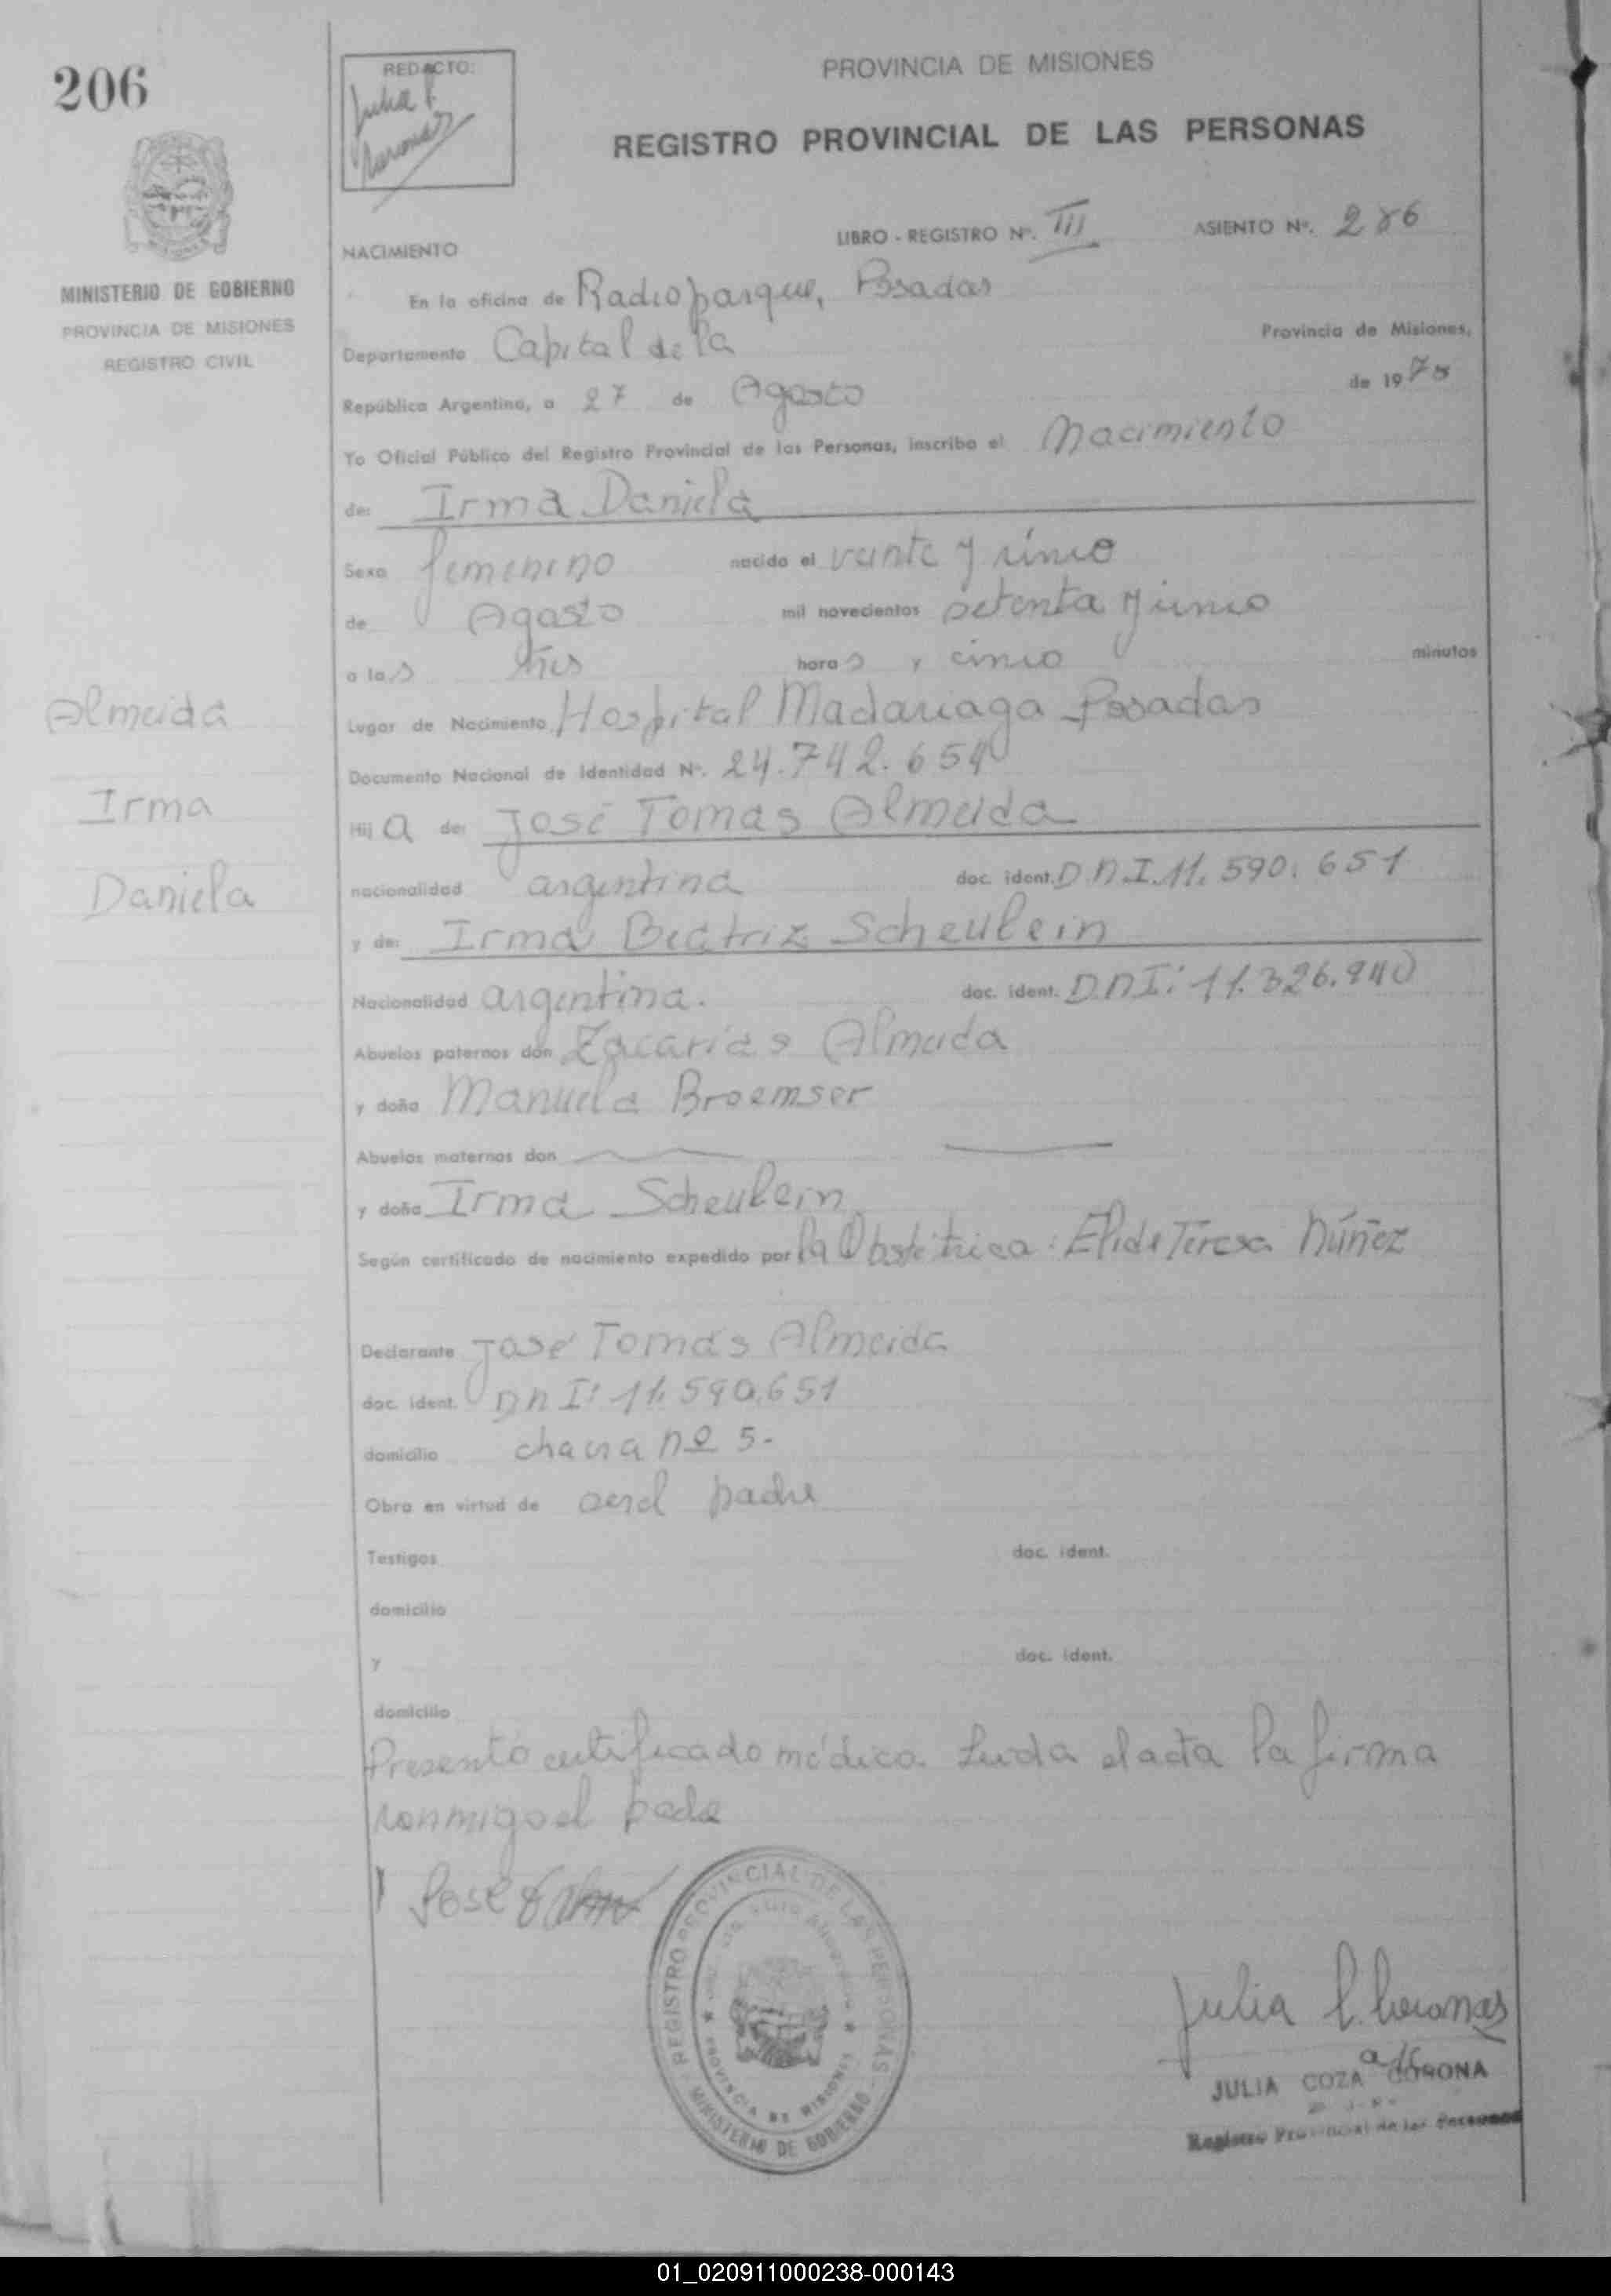 206
REDACTO:
Julia P.
PROVINCIA DE MISIONES
REGISTRO PROVINCIAL DE LAS PERSONAS
MINISTERIO DE GOBIERNO
PROVINCIA DE MISIONES
REGISTRO CIVIL
NACIMIENTO
LIBRO - REGISTRO Nº. III ASIENTO Nº. 206
En la oficina de Radioparque, Posadas
Departamento Capital de la Provincia de Misiones,
República Argentina, a 27 de Agosto de 1975
Yo Oficial Público del Registro Provincial de las Personas, inscribo el Nacimiento
de: Irma Daniela
Sexo femenino nacido el veinte y cinco
de Agosto mil novecientos setenta y cinco
a las tres horas y cinco minutos
Almeida
Irma
Daniela
Lugar de Nacimiento Hospital Madariaga Posadas
Documento Nacional de Identidad Nº. 24.742.654
Hija de: José Tomas Almeida
nacionalidad argentina doc. ident. DNI.11.590.651
y de: Irma Beatriz Scheulein
Nacionalidad argentina. doc. ident. DNI: 11.326.940
Abuelos paternos don Zacarias Almeida
y doña Manuela Broemser
Abuelos maternos don
y doña Irma Scheulein
Según certificado de nacimiento expedido por la Obstétrica: Elida Teresa Núñez
Declarante José Tomás Almeida
doc. ident. DNI: 11.590.651
domicilio chacra nº 5.
Obra en virtud de ser el padre
Testigos doc. ident.
domicilio
y doc. ident.
domicilio
Presentó certificado médico. Leida el acta la firma
conmigo el padre
José
REGISTRO PROVINCIAL DE LAS PERSONAS
PROVINCIA DE MISIONES
MINISTERIO DE GOBIERNO
Julia
JULIA COZA CORONA
Registro Provincial de las Personas
01_020911000238-000143